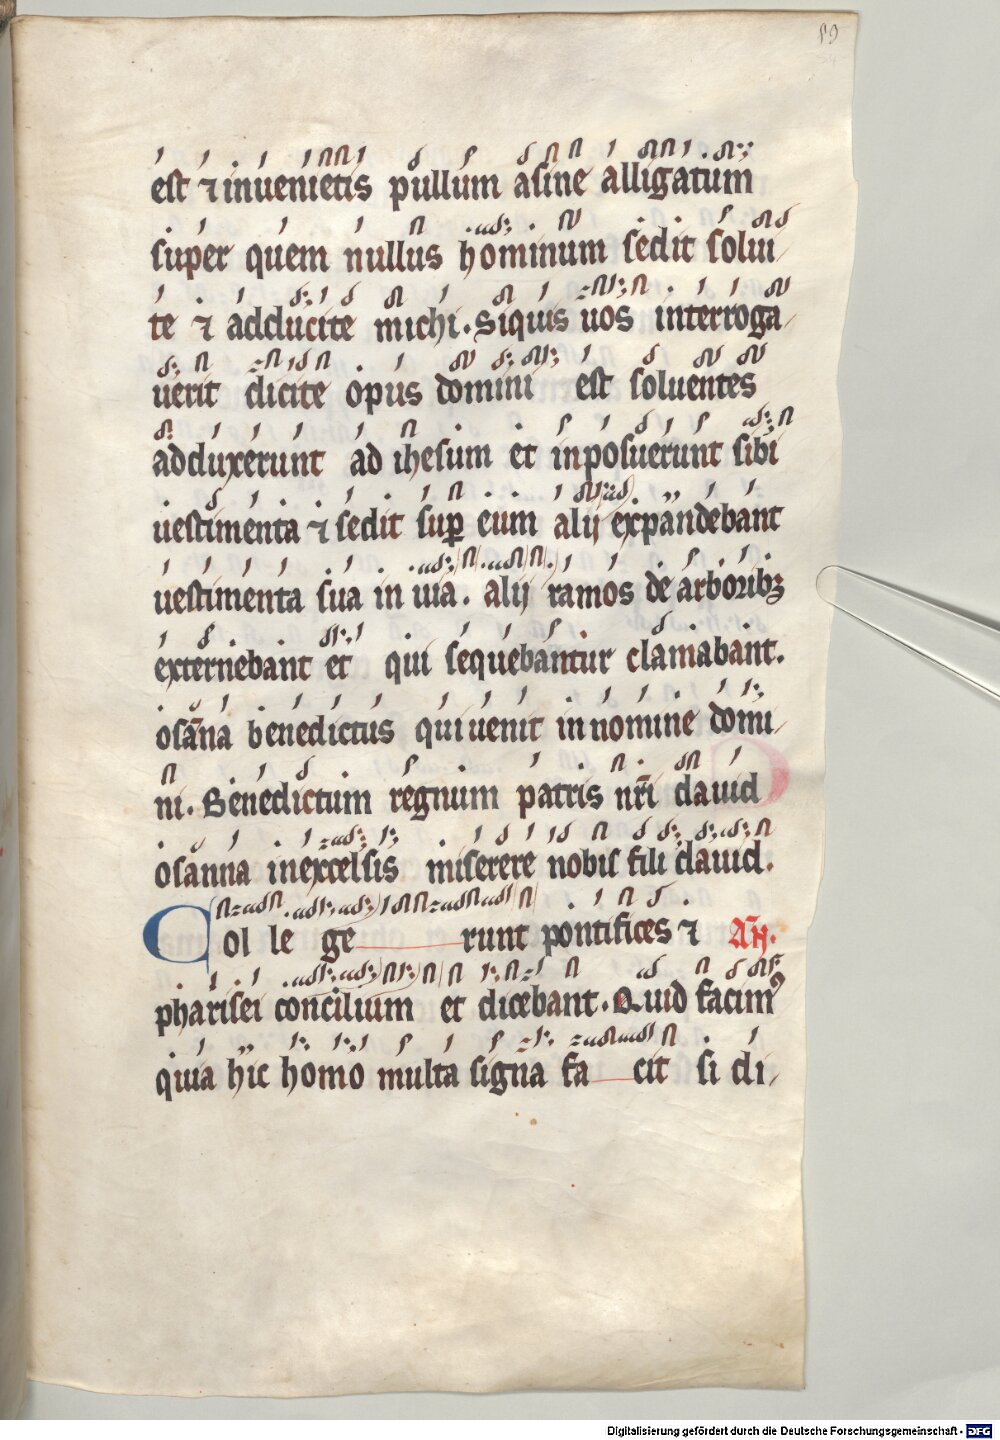 59
est ⁊ inuenietis pullum asine alligatum
super quem nullus hominum sedit solui
te ⁊ adducite michi. Siquis uos interroga
uerit dicite opus domini est soluentes
adduxerunt ad ihesum et inposuerunt sibi
uestimenta ⁊ sedit sup̱ eum alij expandebant
uestimenta sua in uia. alij ramos de arboribꝫ
externebant et qui sequebantur clamabant.
osāna benedictus qui uenit in nomine domi
ni. Benedictum regnum patris nr̄i dauid
osanna inexcelsis miserere nobis fili dauid.
Col le ge runt pontifices ⁊ Añ.
pharisei concilium et dicebant. Quid facimꝰ
quia hic homo multa signa fa cit si di
Digitalisierung gefördert durch die Deutsche Forschungsgemeinschaft - DFG